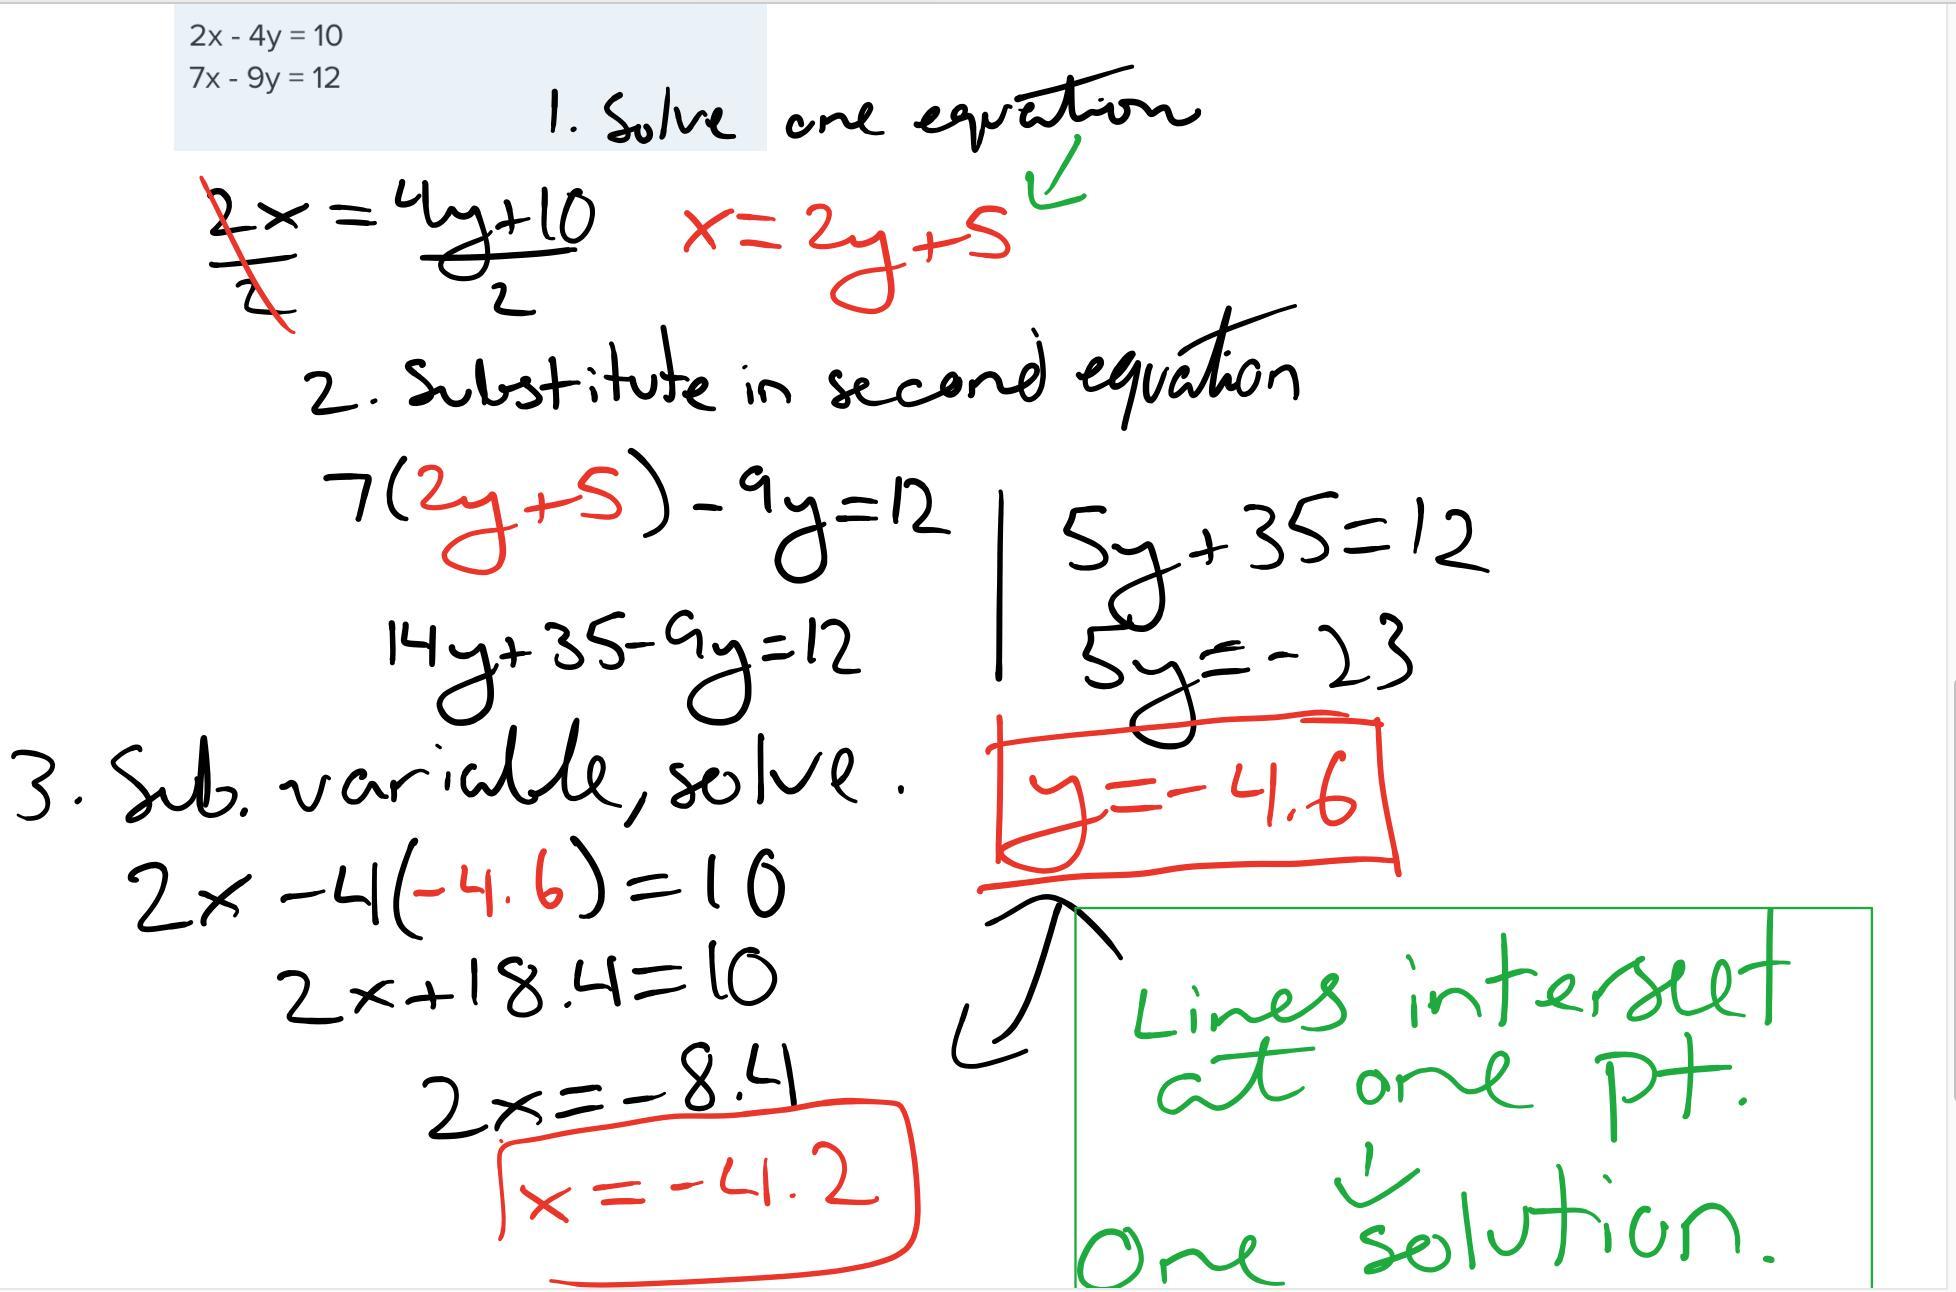 2x - 4y = 10
7x - 9y = 12
1. Solve one equation
2x = 4y+10
2 2
x = 2y+5
2. Substitute in second equation
7(2y+5) - 9y = 12
14y + 35 - 9y = 12
5y + 35 = 12
5y = -23
y = -4.6
3. Sub. variable, solve.
2x - 4(-4.6) = 10
2x + 18.4 = 10
2x = -8.4
x = -4.2
Lines intersect
at one pt.
One solution.